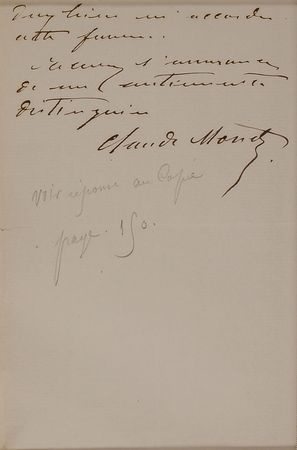 m'accorder
cette faveur.
l'assurance
de mes sentiments
distingués
Claude Monet
Voir réponse au Copie
page 150.